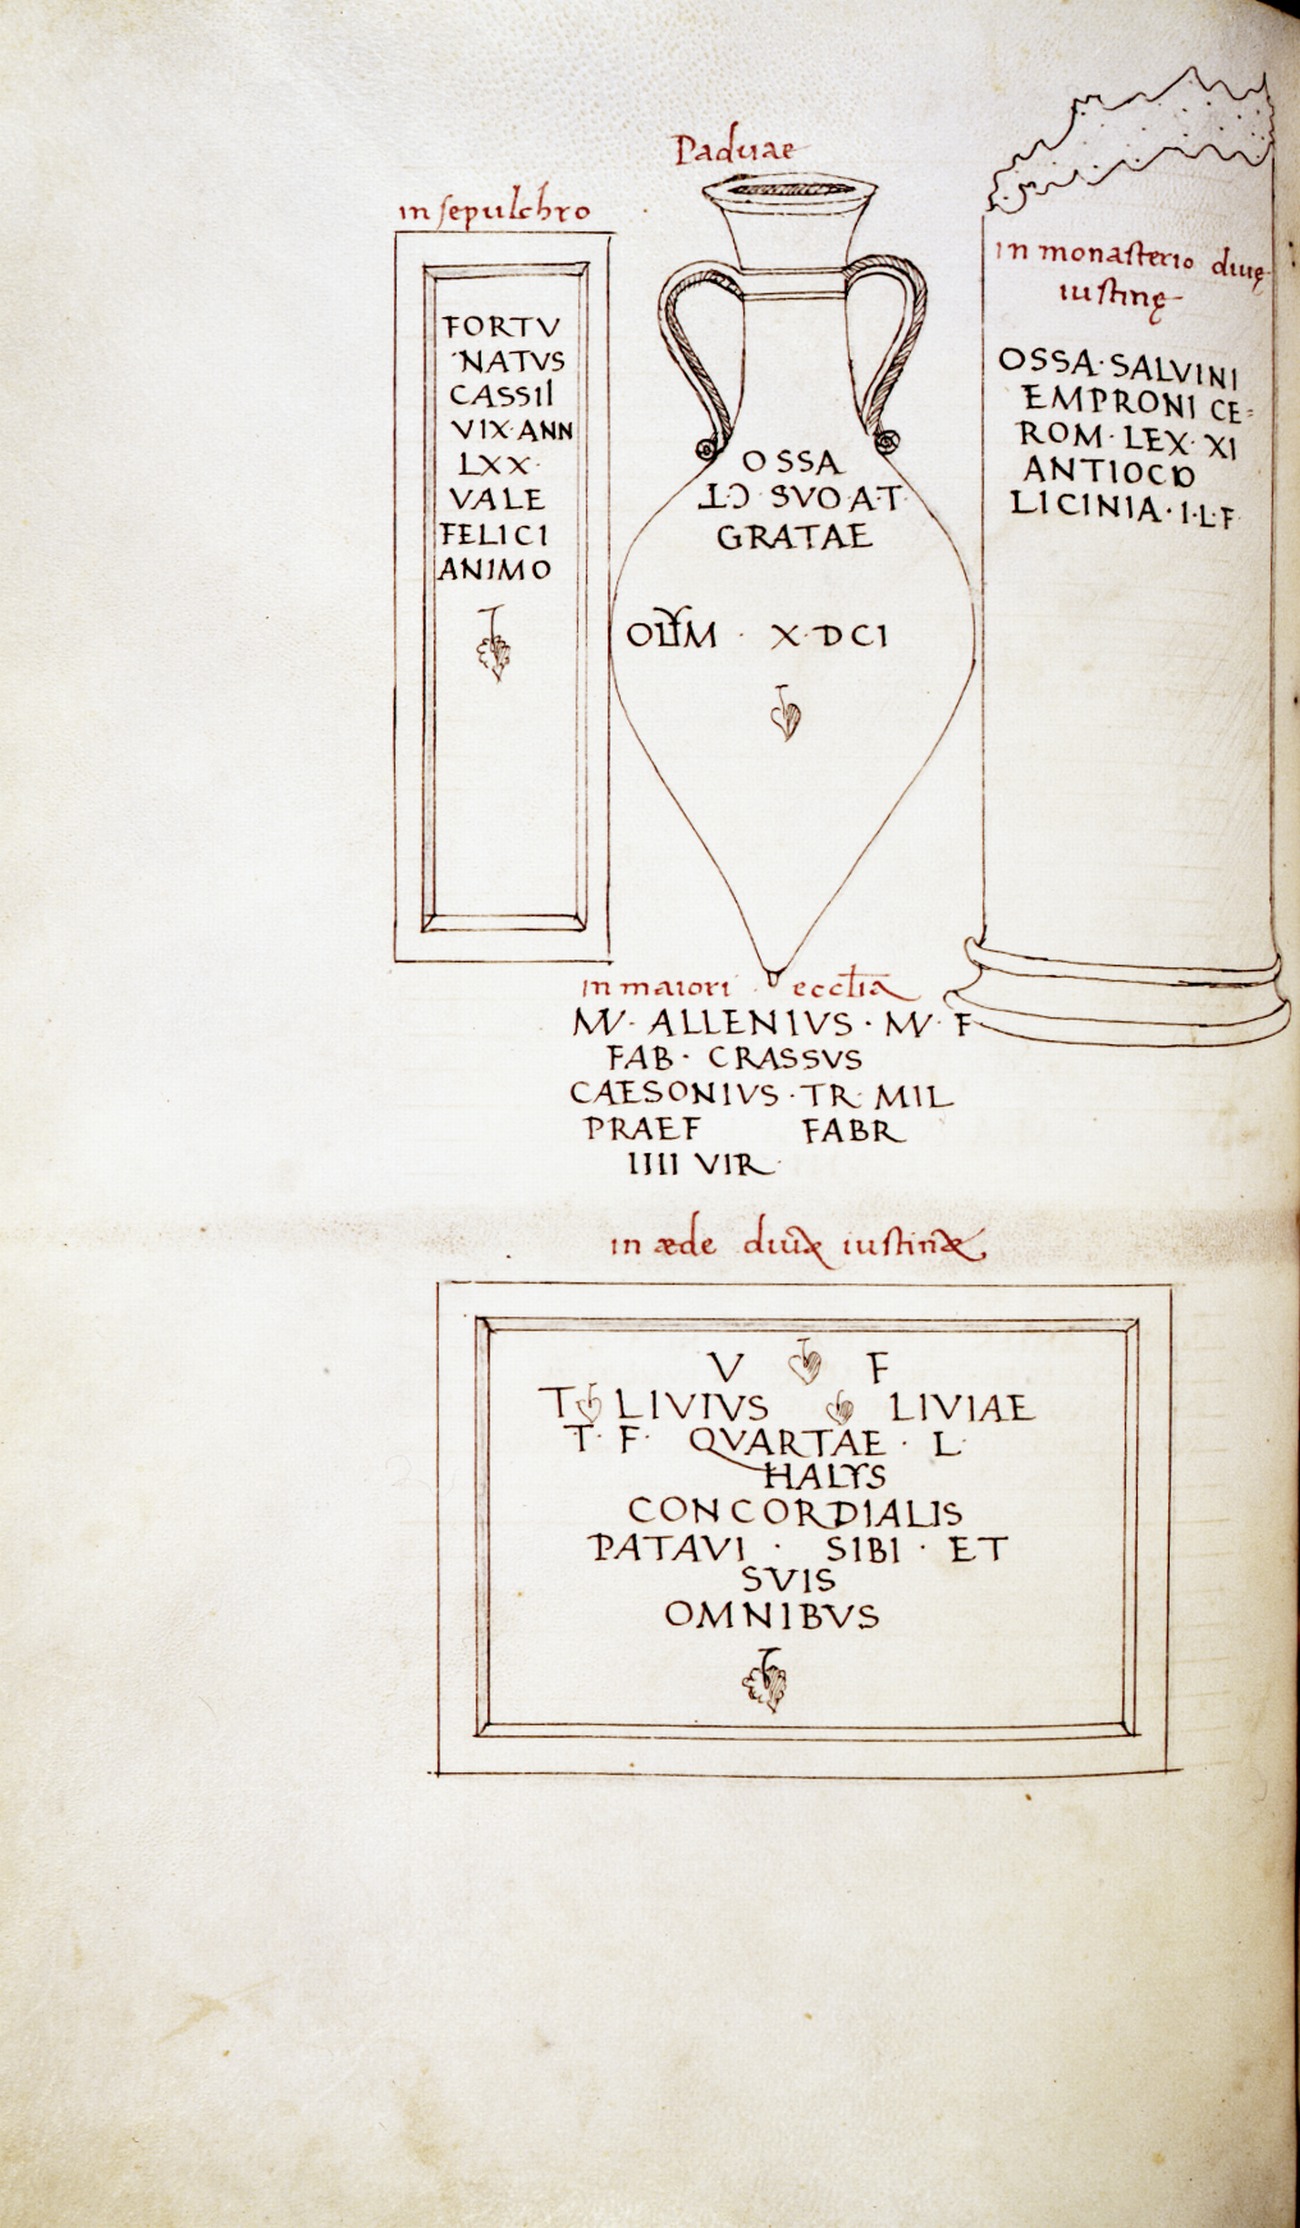 Paduae
in sepulchro
FORTV
NATVS
CASSII
VIX·ANN
LXX·
VALE
FELICI
ANIMO
OSSA
SVO·A·T·
GRATAE
X·DCI
in monasterio diuę
iustinę
OSSA·SALVINI
EMPRONI CE=
ROM·LEX·XI
ANTIOCO
LICINIA·I·L·F·
in maiori ecclia
MV· ALLENIVS · MV· F
FAB· CRASSVS
CAESONIVS·TR· MIL
PRAEF FABR
IIII VIR·
in æde diuæ iustinæ
V F
T LIVIVS LIVIAE
T· F· QVARTAE · L·
HALYS
CONCORDIALIS
PATAVI · SIBI · ET
SVIS
OMNIBVS